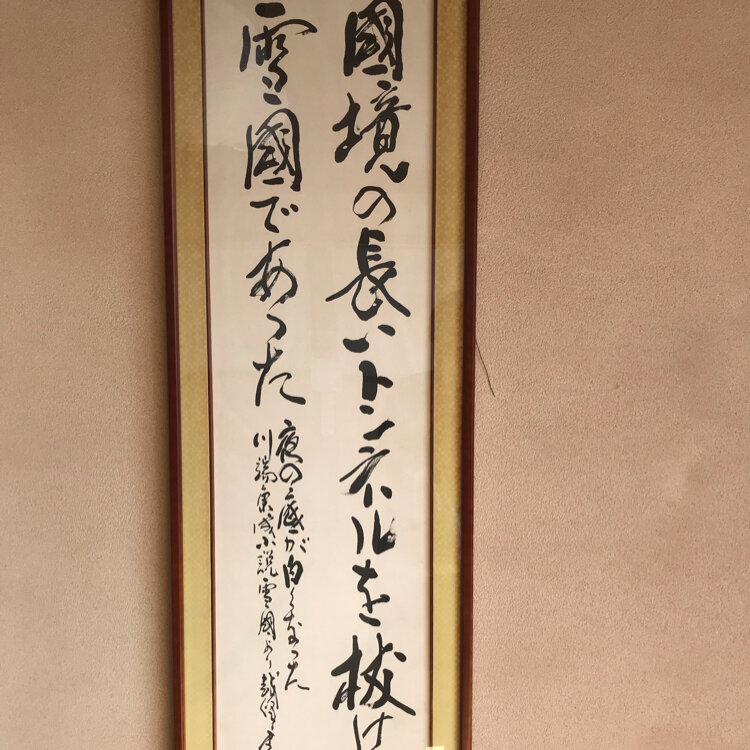 國境の長いトンネルを抜け
雪國であった
夜の底が白くなった
川端康成小説雪國より